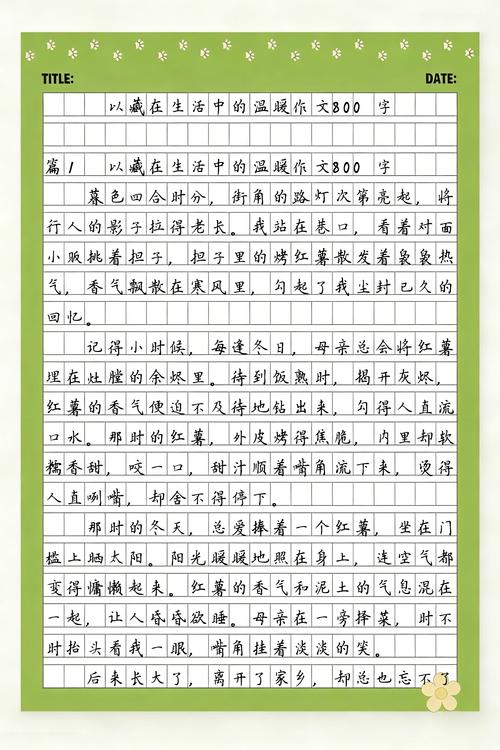 TITLE: DATE:
以藏在生活中的温暖作文800 字
篇1 以藏在生活中的温暖作文800 字
暮色四合时分，街角的路灯次第亮起，将
行人的影子拉得老长。我站在巷口，看着对面
小贩挑着担子，担子里的烤红薯散发着袅袅热
气，香气飘散在寒风里，勾起了我尘封已久的
回忆。
记得小时候，每逢冬日，母亲总会将红薯
埋在灶膛的余烬里。待到饭熟时，揭开灰烬，
红薯的香气便迫不及待地钻出来，勾得人直流
口水。那时的红薯，外皮烤得焦脆，内里却软
糯香甜，咬一口，甜汁顺着嘴角流下来，烫得
人直咧嘴，却舍不得停下。
那时的冬天，总爱捧着一个红薯，坐在门
槛上晒太阳。阳光暖暖地照在身上，连空气都
变得慵懒起来。红薯的香气和泥土的气息混在
一起，让人昏昏欲睡。母亲在一旁择菜，时不
时抬头看我一眼，嘴角挂着淡淡的笑。
后来长大了，离开了家乡，却总也忘不了